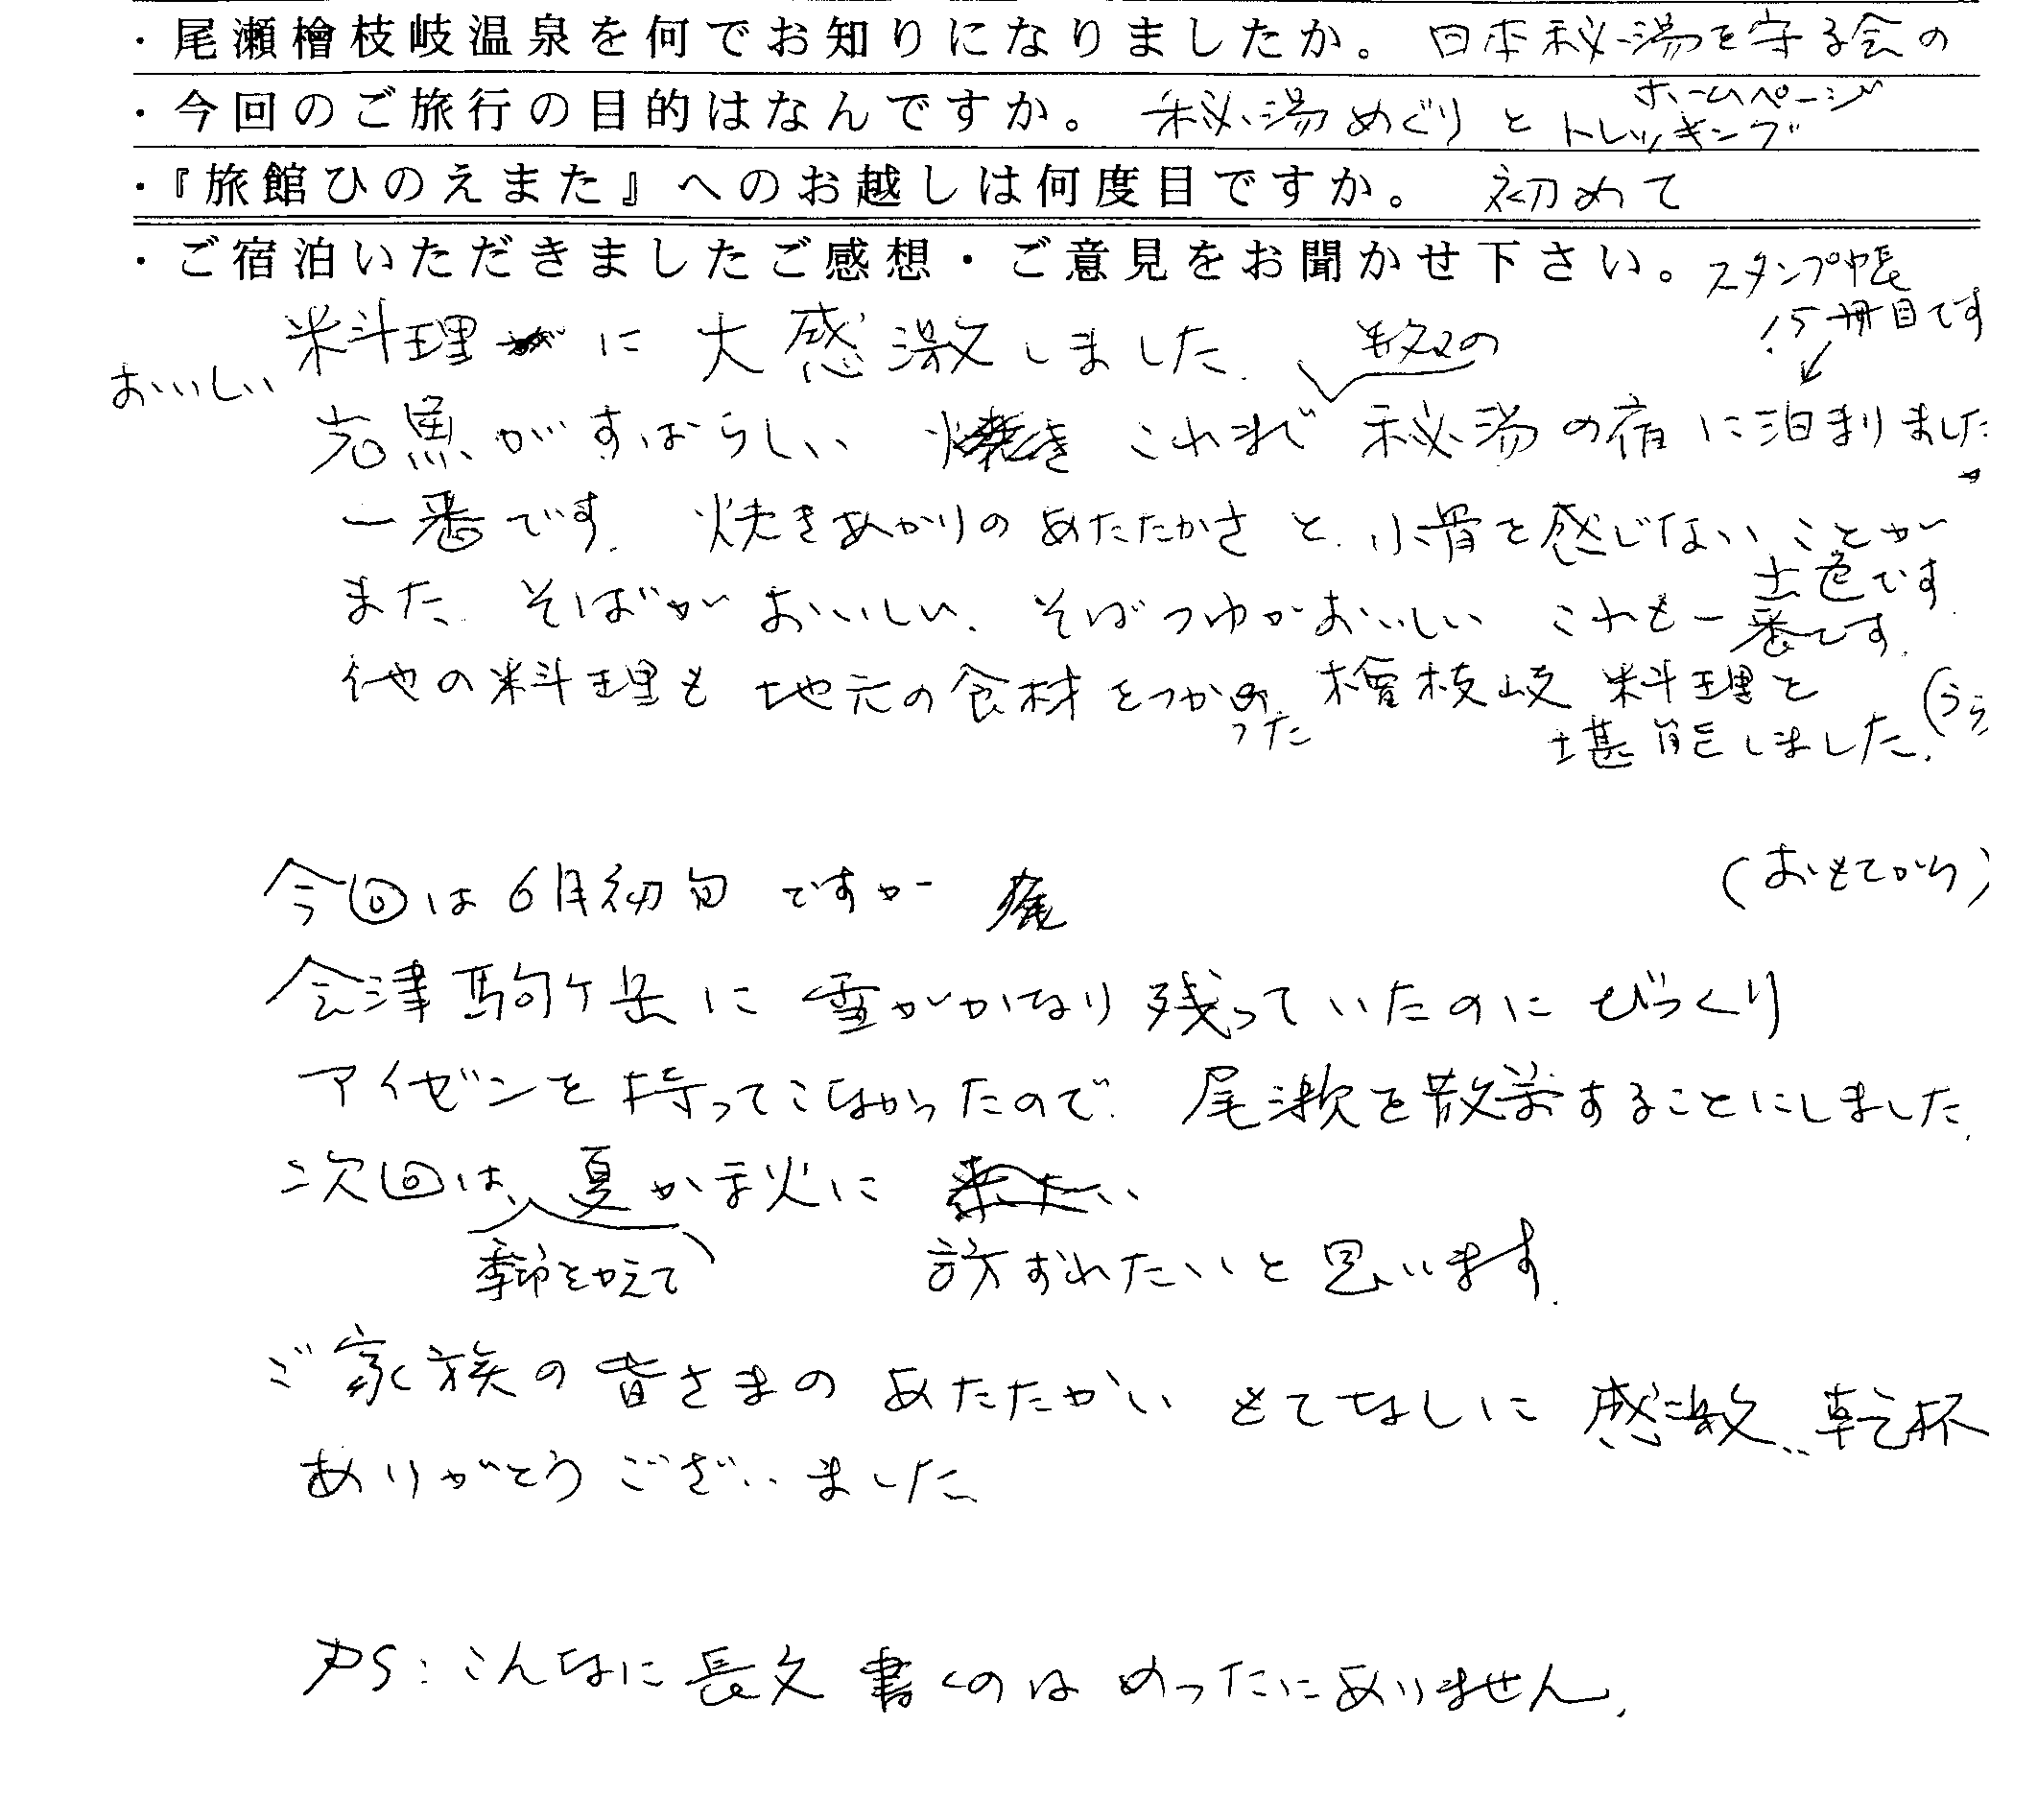 ・尾瀬檜枝岐温泉を何でお知りになりましたか。 日本秘湯を守る会の
ホームページ
・今回のご旅行の目的はなんですか。 秘湯めぐりとトレッキング
・『旅館ひのえまた』へのお越しは何度目ですか。 初めて
・ご宿泊いただきましたご感想・ご意見をお聞かせ下さい。
スタンプ帳
15冊目です
おいしい 料理に大感激しました。
岩魚がすばらしい これまで数々の秘湯の宿に泊まりました
一番です。焼きあがりのあたたかさと、小骨を感じないことが
出色です
また、そばがおいしい、そばつゆがおいしい これも一番です。
他の料理も地元の食材をつかった檜枝岐料理を
堪能しました。
(うら
(おもてから)
今回は6月初旬ですが
会津駒ヶ岳に雪がかなり残っていたのにびっくり
アイゼンを持ってこなかったので、尾瀬を散策することにしました。
次回は、季節をかえて夏か秋に
訪ずれたいと思います。
ご家族の皆さまのあたたかいもてなしに感激、乾杯
ありがとうございました
PS:こんなに長文書くのはめったにありません。